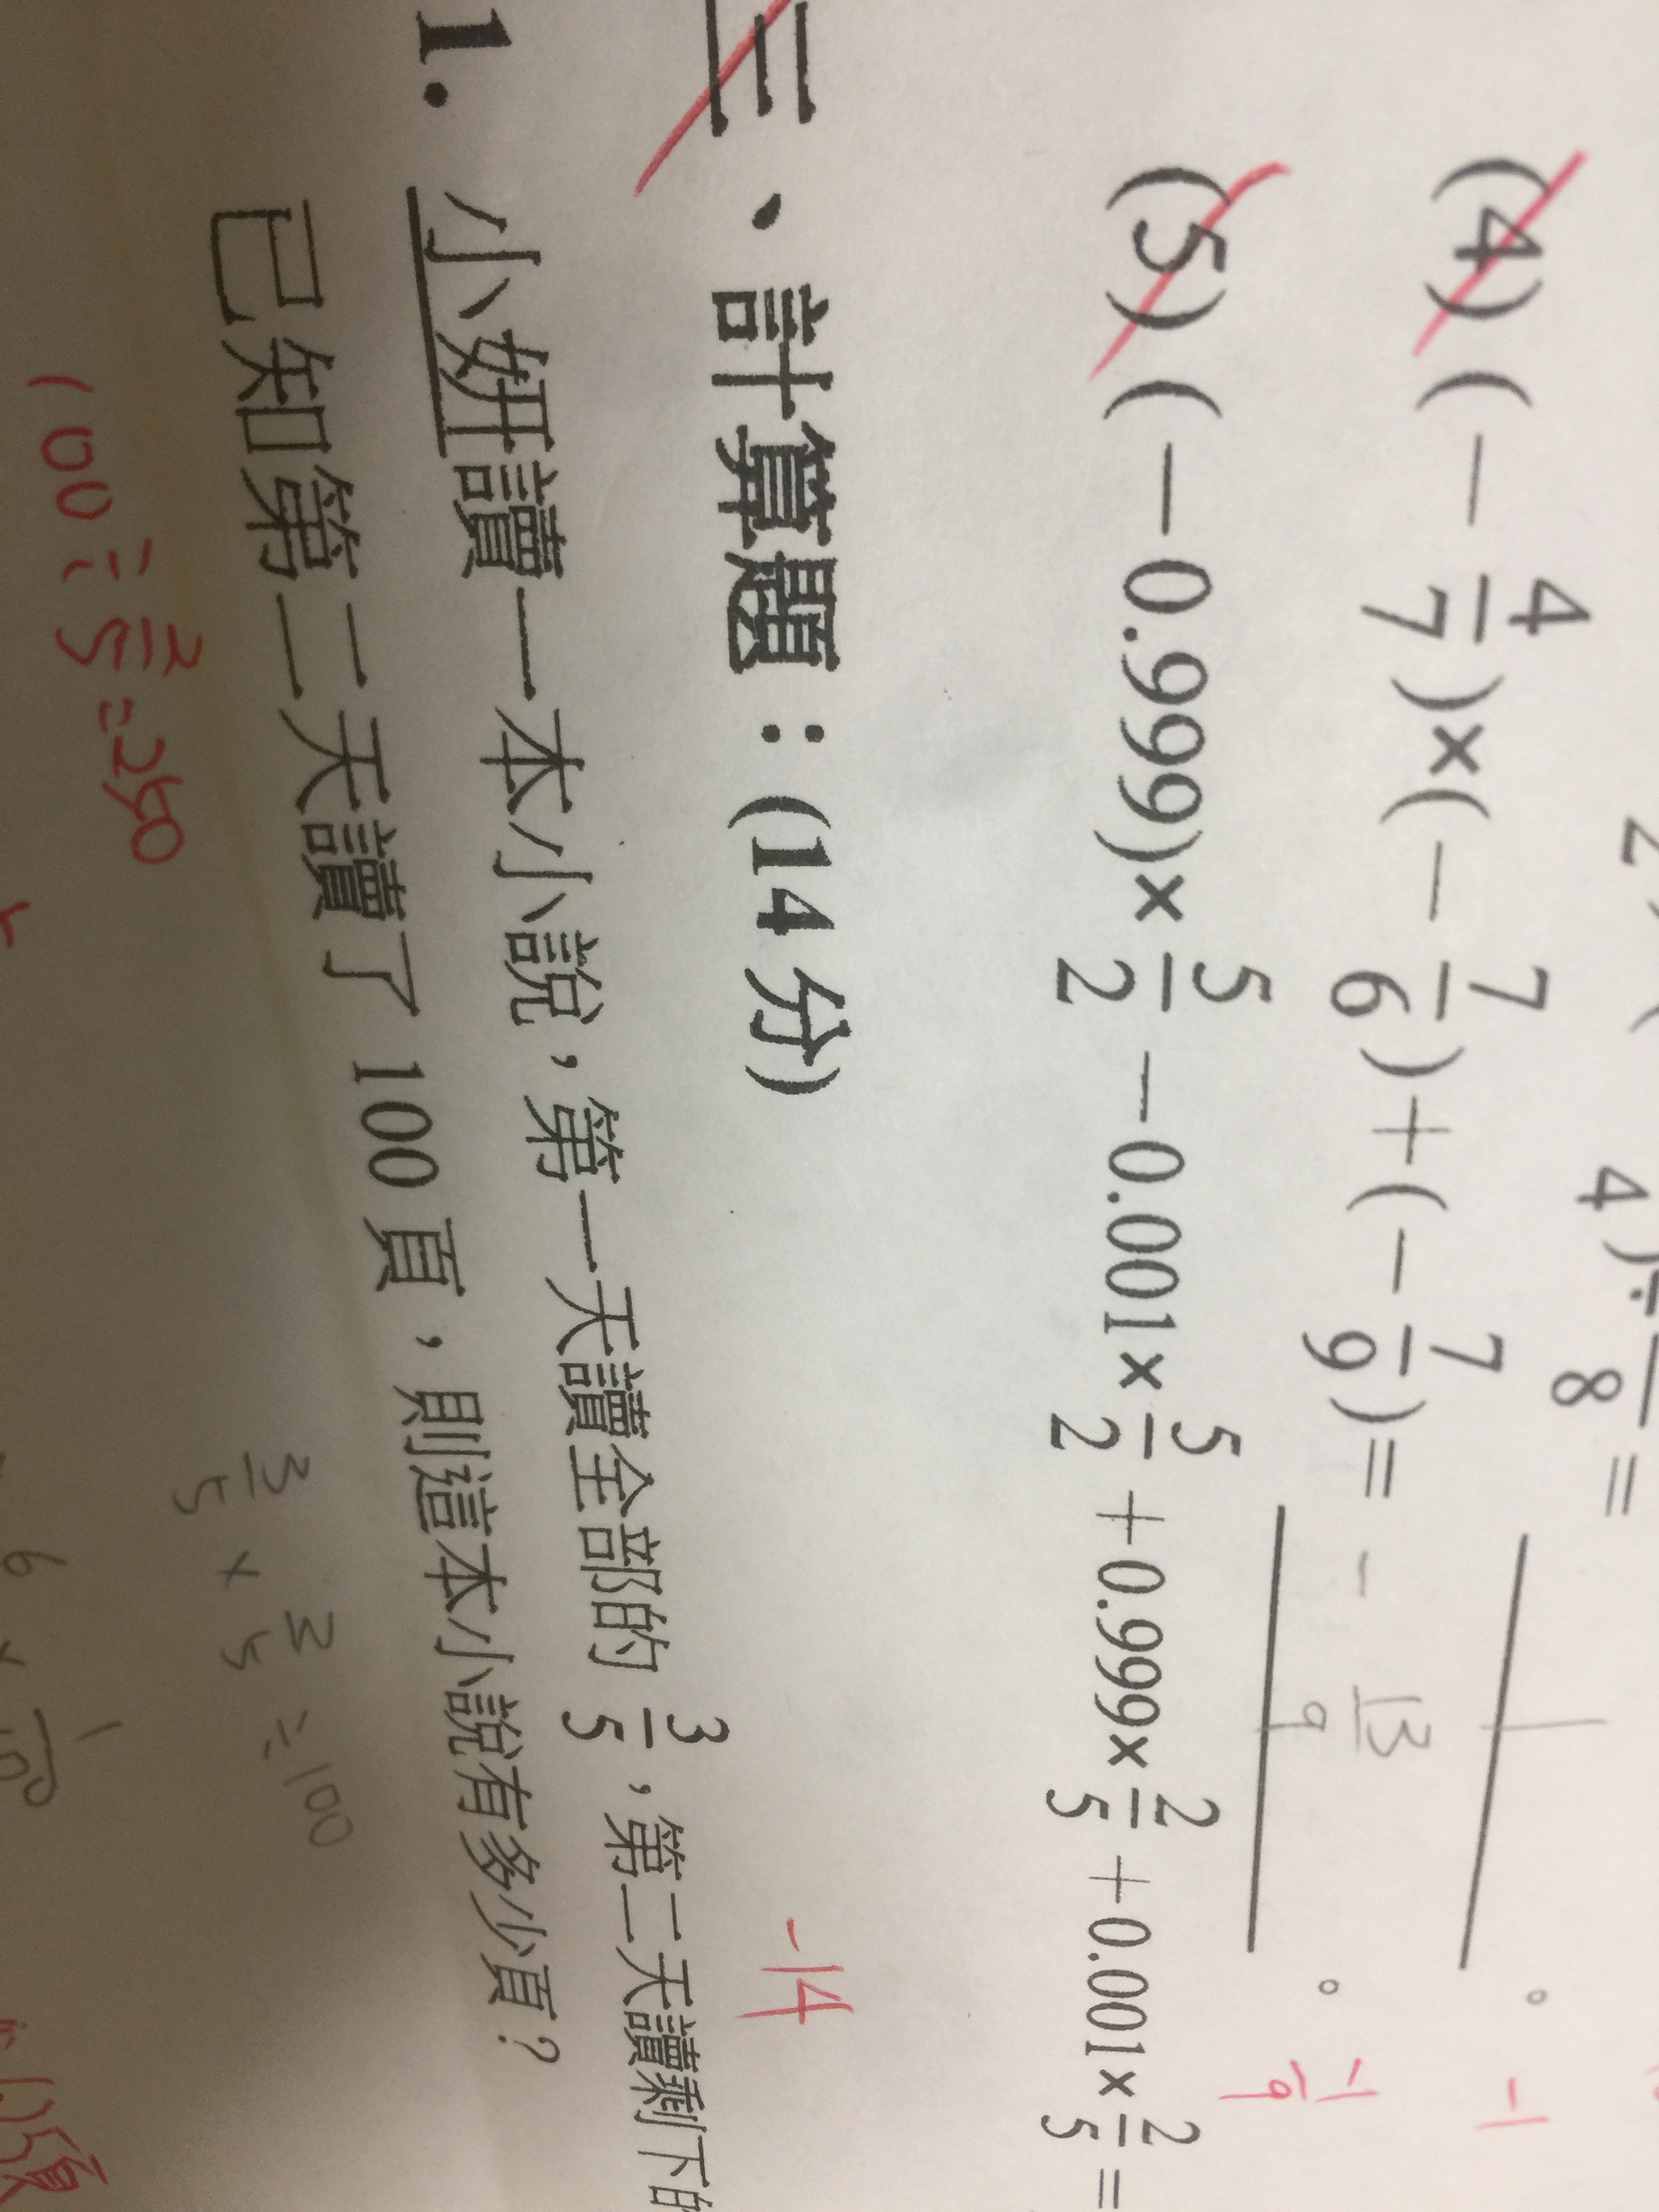 4)÷ /8 =
-1
(4) (－4/7)×(－7/6)＋(－7/9)= - 13/9 。 -1/9
(5) (－0.999)×5/2－0.001×5/2＋0.999×2/5＋0.001×2/5=
三、計算題：(14 分) -14
1. 小妍讀一本小說，第一天讀全部的3/5，第二天讀剩下的
已知第二天讀了 100 頁，則這本小說有多少頁？
3/5 × 2/5 = 100
100÷2/5=250